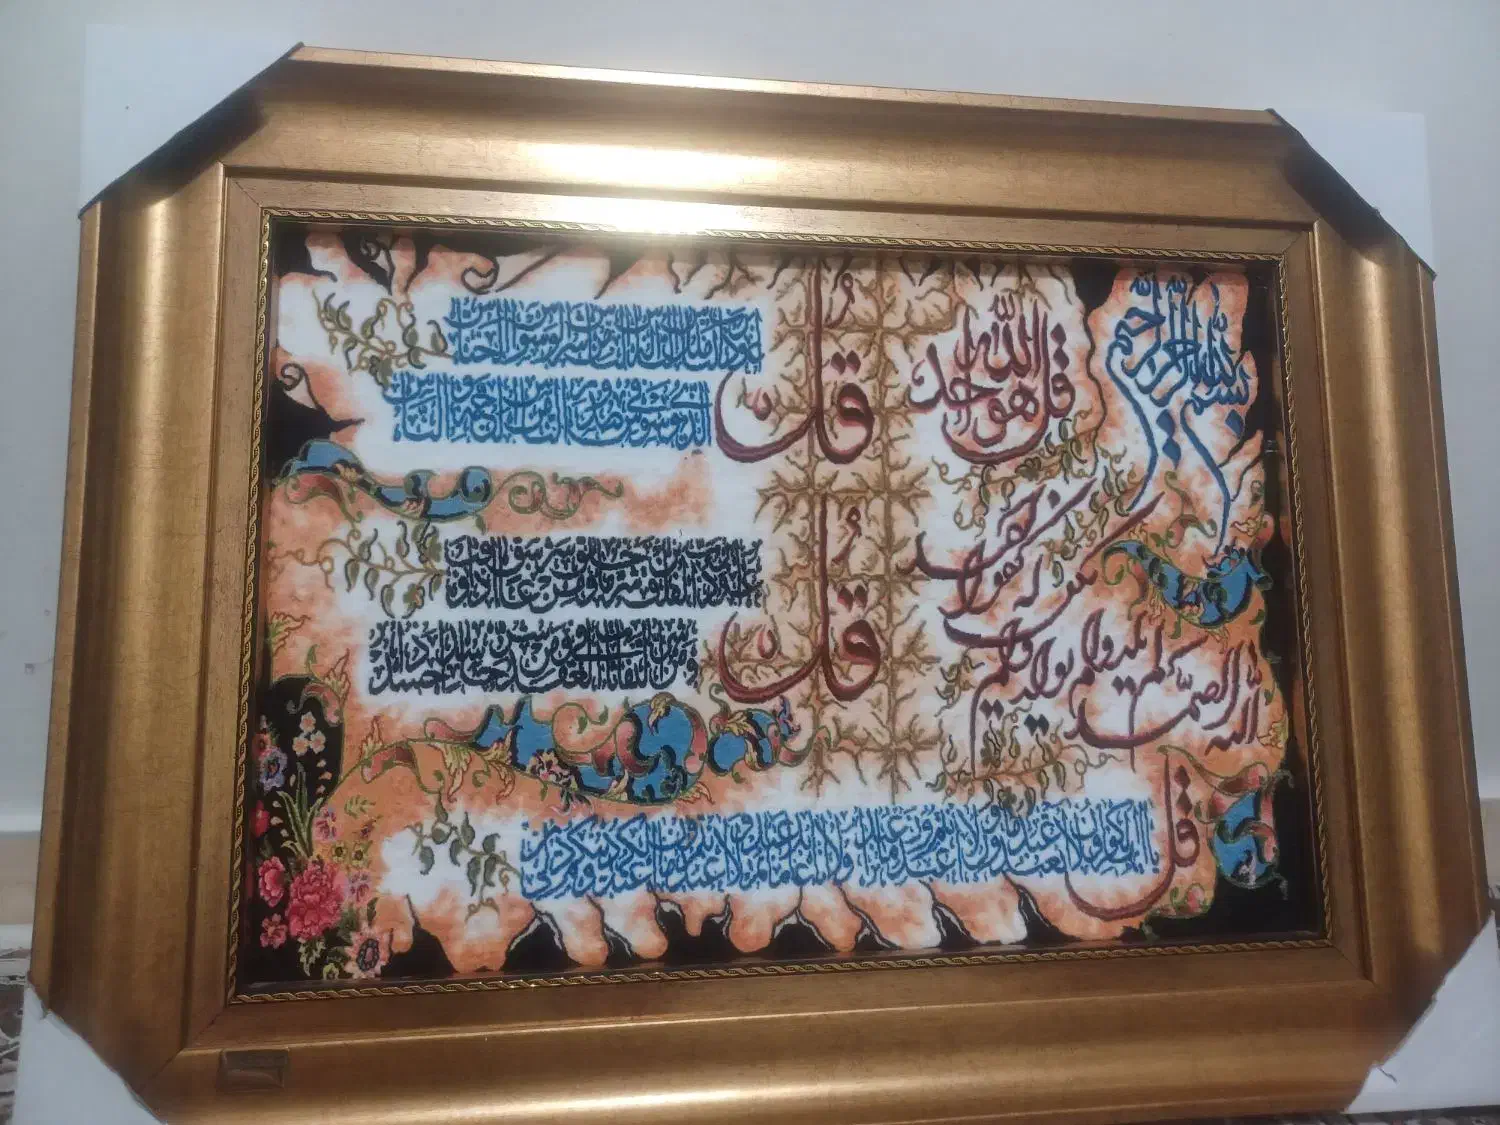 بسم الله الرحمن الرحيم
قل هو الله احد
الله الصمد لم يلد ولم يولد ولم
يكن له كفوا احد
قل اعوذ برب الناس ملك الناس اله الناس من شر الوسواس الخناس
الذي يوسوس في صدور الناس من الجنة و الناس
قل اعوذ برب الفلق من شر ما خلق و من شر غاسق اذا وقب
و من شر النفاثات في العقد و من شر حاسد اذا حسد
قل يا ايها الكافرون لا اعبد ما تعبدون ولا انتم عابدون ما اعبد ولا انا عابد ما عبدتم ولا انتم عابدون ما اعبد لكم دينكم ولي دين